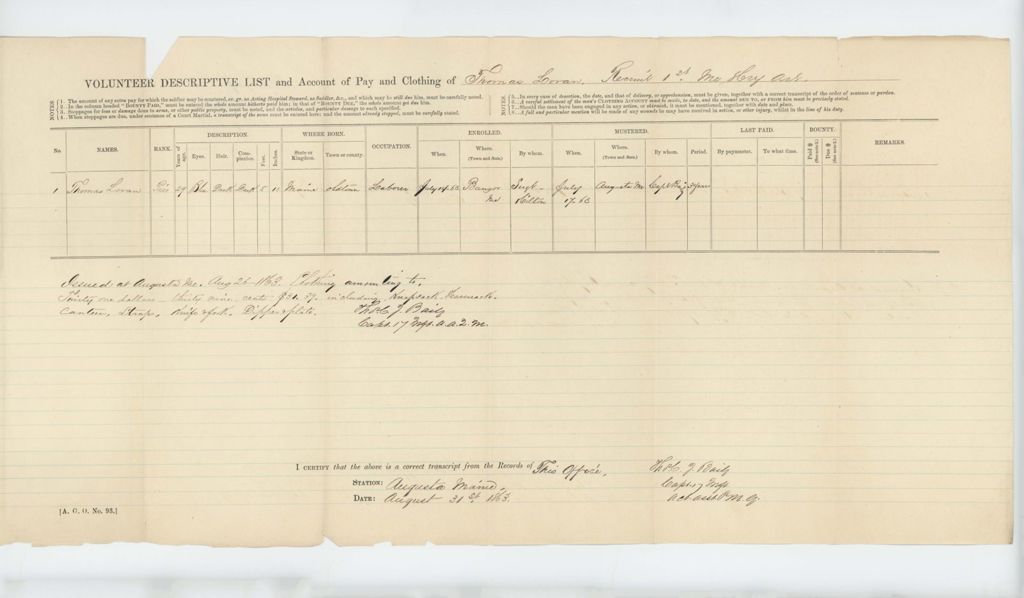 VOLUNTEER DESCRIPTIVE LIST and Account of Pay and Clothing of Thomas Loran, Recruit 1st Me Hvy Art.
NOTES
1. The amount of any extra pay for which the soldier may be mustered, ex. gr. as Acting Hospital Steward, as Saddler, &c., and which may be still due him, must be carefully noted.
2. In the column headed "BOUNTY PAID," must be entered the whole amount hitherto paid him; in that of "BOUNTY DUE," the whole amount yet due him.
3. Stoppages for loss or damage done to arms, or other public property, must be noted, and the articles, and particular damage to each specified.
4. When stoppages are due, under sentence of a Court Martial, a transcript of the same must be entered here; and the amount already stopped, must be carefully stated.
NOTES
5. In every case of desertion, the date, and that of delivery, or apprehension, must be given, together with a correct transcript of the order of sentence or pardon.
6. A careful settlement of the man's CLOTHING ACCOUNT must be made, to date, and the amount DUE TO, or FROM him must be precisely stated.
7. Should the man have been engaged in any action, or skirmish, it must be mentioned, together with date and place.
8. A full and particular mention will be made of any wounds he may have received in action, or other injury, whilst in the line of his duty.
No. NAMES. RANK. DESCRIPTION. WHERE BORN. OCCUPATION. ENROLLED. MUSTERED. LAST PAID. BOUNTY. REMARKS.
Years of age. Eyes. Hair. Complexion. Feet. Inches. State or Kingdom. Town or county. When. Where. (Town and State.) By whom. When. Where. (Town and State.) By whom. Period. By paymaster. To what time. Paid $ (See note 2.) Due $ (See note 2.)
1 Thomas Loran Priv 29 Blue Dark Dark 5 11 Maine Oldtown Laborer July 14 63 Bangor Me July 17 63 Augusta Me 3 Years
Issued at Augusta Me. Aug 26 1863. Clothing amounting to,
Thirty one dollars – thirty nine cents $31.39. including Knapsack Haversack.
Canteen, Straps, Knife & fork. Dipper & plate.
Capt. 17 Inf. A.A.Q.M.
I CERTIFY that the above is a correct transcript from the Records of This Office,
STATION: Augusta Maine,
DATE: August 31st 1863
Capt 17 Inf
[A. G. O. No. 93.]